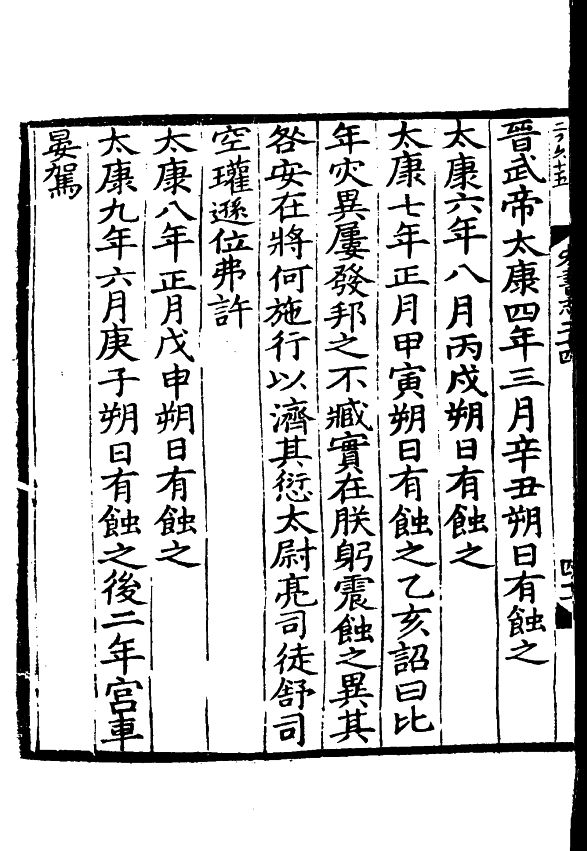 晉武帝太康四年三月辛丑朔日有蝕之
太康六年八月丙戍朔日有蝕之
太康七年正月甲寅朔日有蝕之乙亥詔曰比
年灾異屢發邦之不臧實在朕躬震蝕之異其
咎安在將何施行以濟其愆太尉亮司徒舒司
空瓘遜位弗許
太康八年正月戊申朔日有蝕之
太康九年六月庚子朔日有蝕之後二年宮車
晏駕